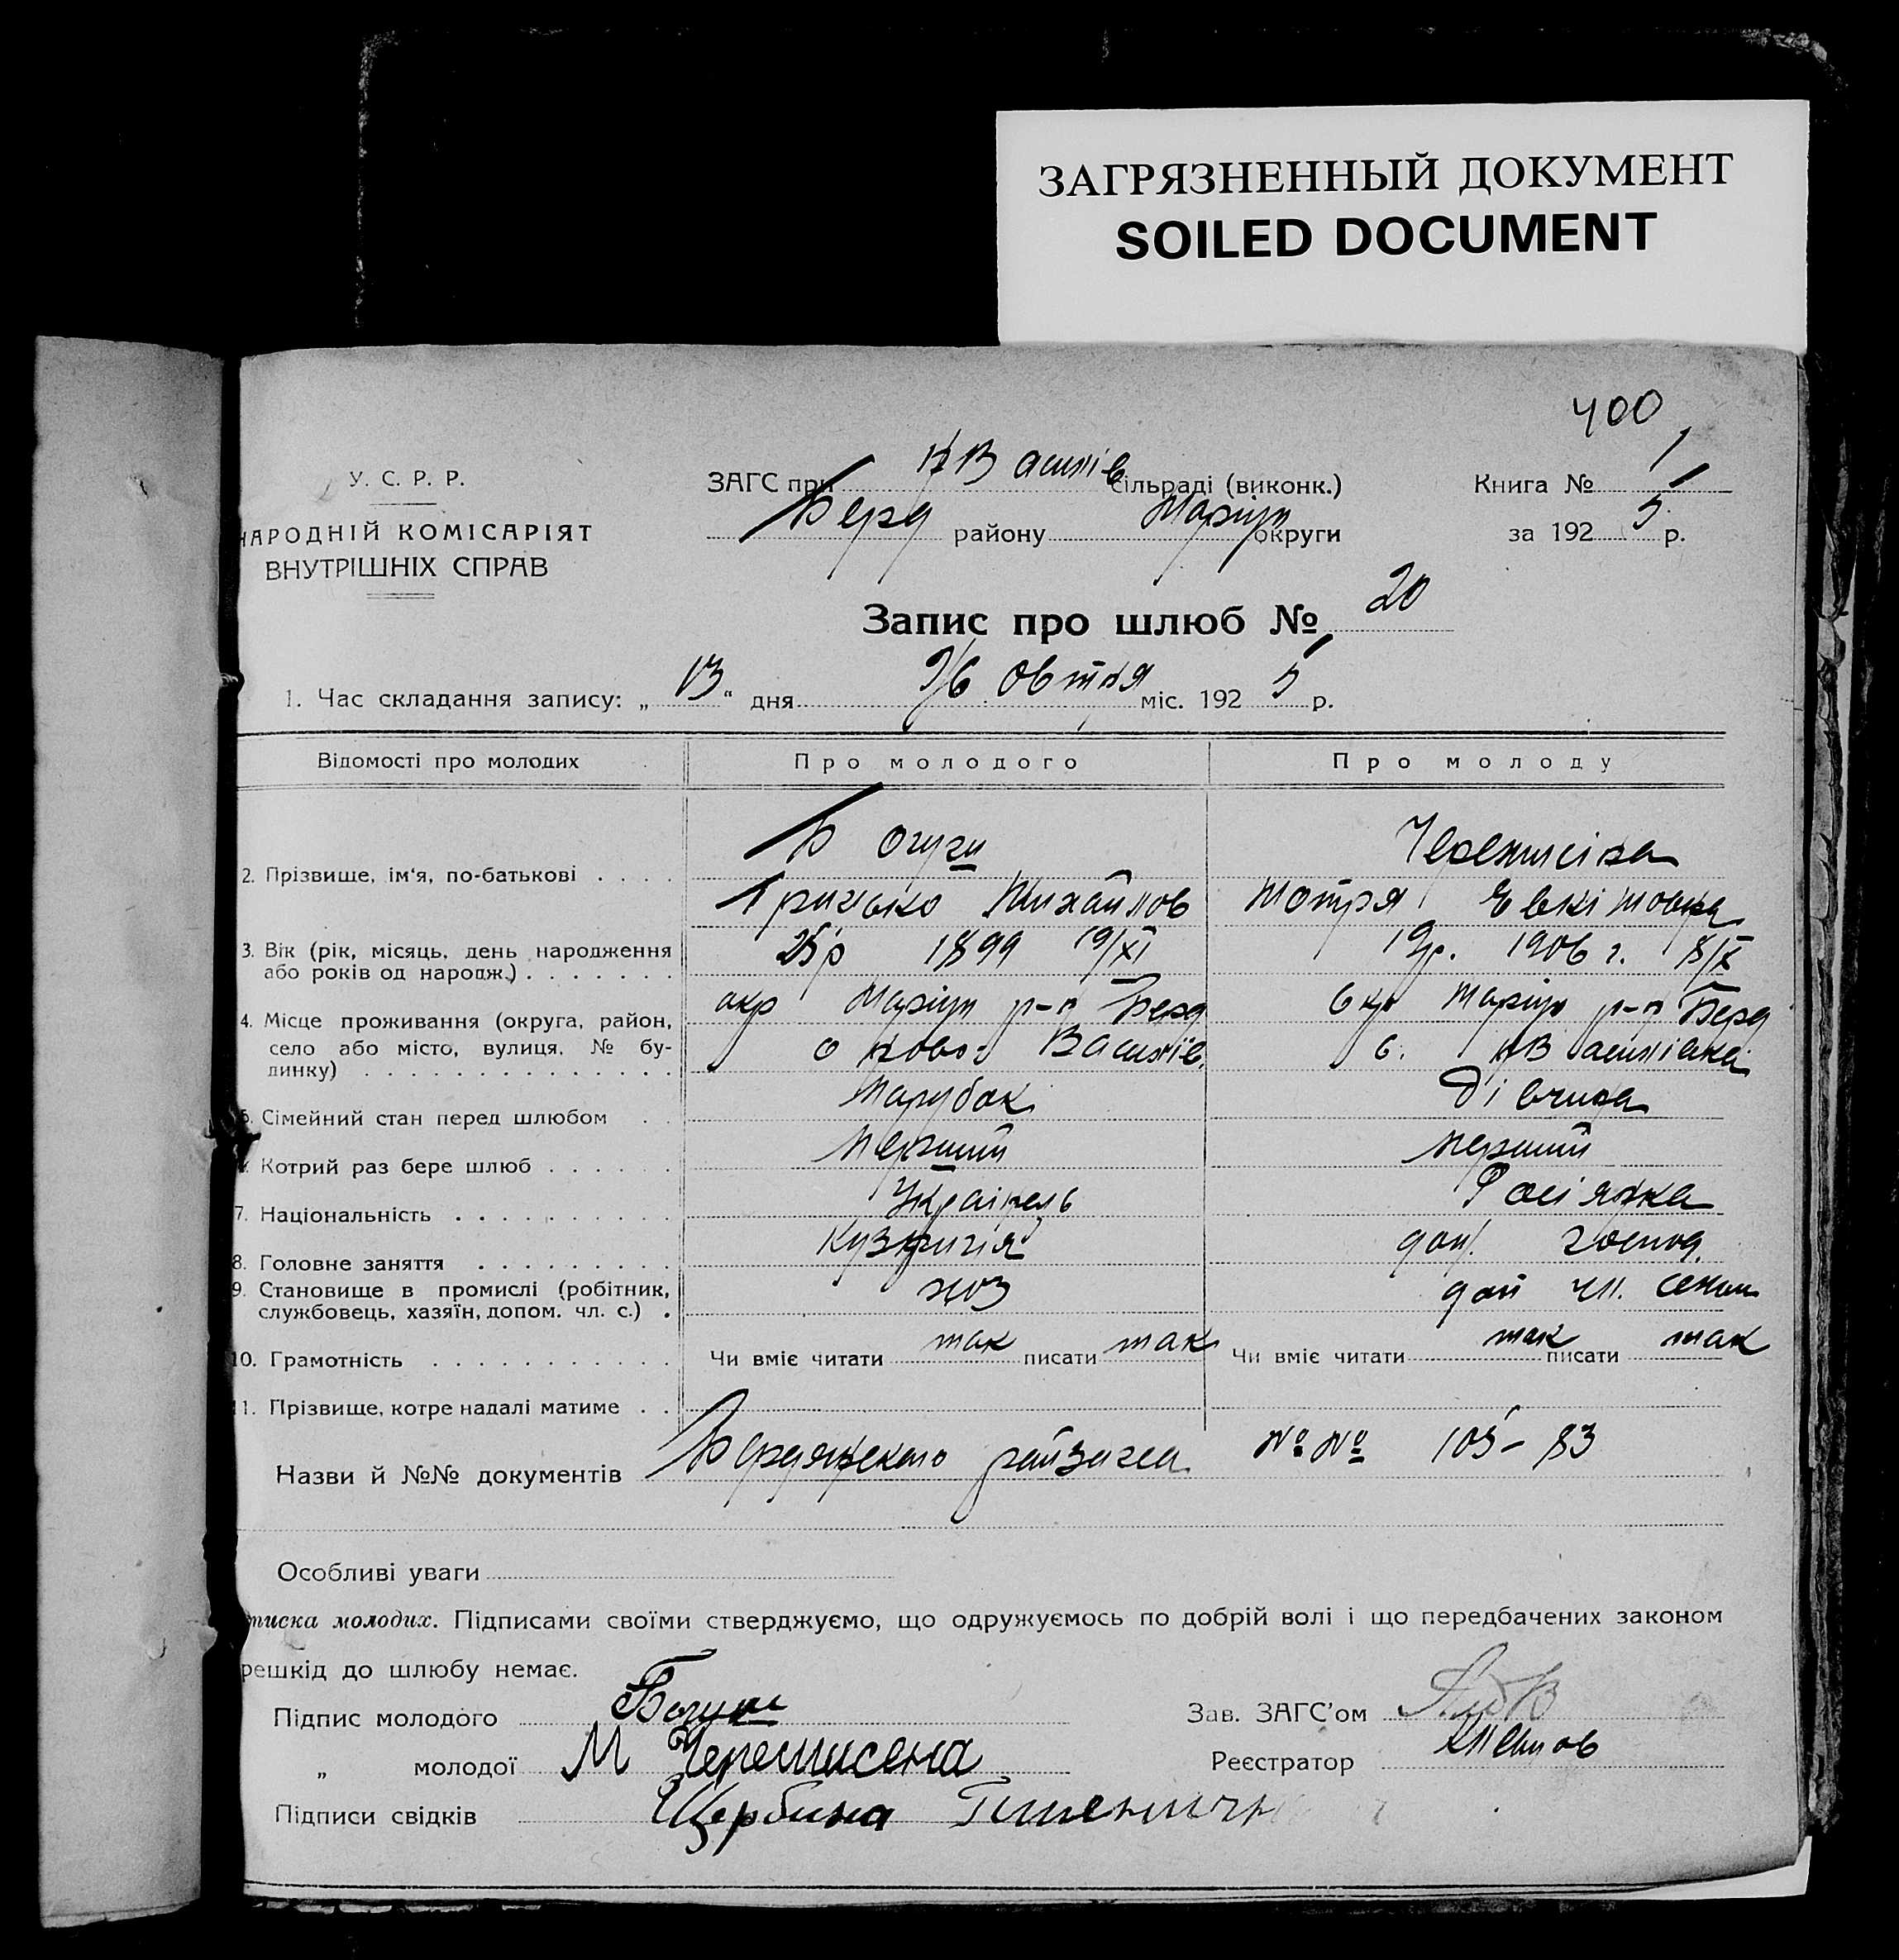 ЗАГРЯЗНЕННЫЙ ДОКУМЕНТ
SOILED DOCUMENT
400
У. С. Р. Р.
НАРОДНІЙ КОМІСАРІЯТ
ВНУТРІШНІХ СПРАВ
ЗАГС при Н Василів сільраді (виконк.)
Берд району Маріуп округи
Книга № 1
за 192 5 р.
Запис про шлюб № 20
1. Час складання запису: „ 13 “ дня Жовтня міс. 192 5 р.
Відомості про молодих Про молодого Про молоду
2. Прізвище, ім‘я, по-батькові Богуш Черемисіна
Грицько Михайлов Мотря Евкімовна
3. Вік (рік, місяць, день народження або років од народж.) 25 р 1899 19/XI 19 р. 1906 г. 18/IX
4. Місце проживання (округа, район, село або місто, вулиця, № будинку) окр Маріуп р-н Берд окр Маріуп р-н Берд
с Ново-Василів. с. Н Василівка
5. Сімейний стан перед шлюбом Парубок Дівчина
Котрий раз бере шлюб Перший перший
7. Національність Українець Росіянка
8. Головне заняття дом. господ.
9. Становище в промислі (робітник, службовець, хазяїн, допом. чл. с.) доп чл. семьи
10. Грамотність Чи вміє читати так писати так Чи вміє читати так писати так
11. Прізвище, котре надалі матиме
Назви й №№ документів Бердянського райзагса №№ 105-83
Особливі уваги
тиска молодих. Підписами своїми стверджуємо, що одружуємось по добрій волі і що передбачених законом
решкід до шлюбу немає.
Підпис молодого Богуш
Зав. ЗАГС’ом
„ молодої М Черемисена
Реєстратор
Підписи свідків Щербина